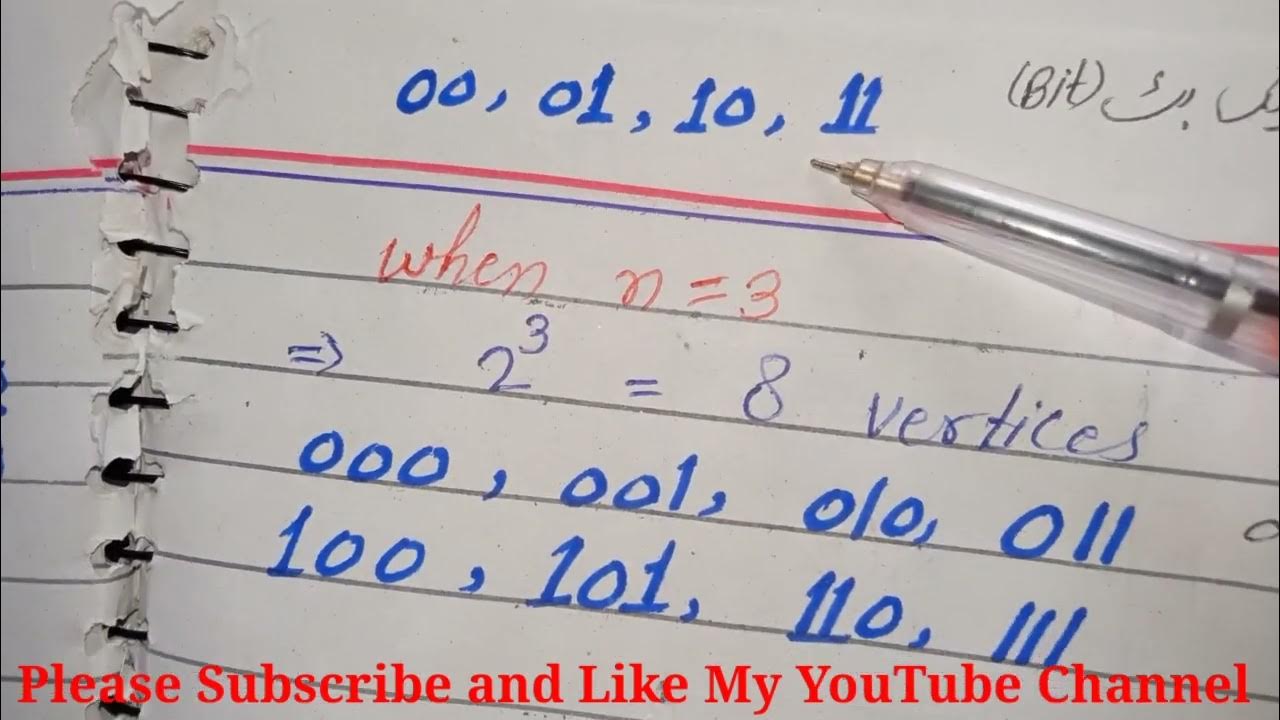 00, 01, 10, 11
(Bit) بٹ
when n=3
⇒ 2³ = 8 vertices
000, 001, 010, 011
100, 101, 110, 111
Please Subscribe and Like My YouTube Channel